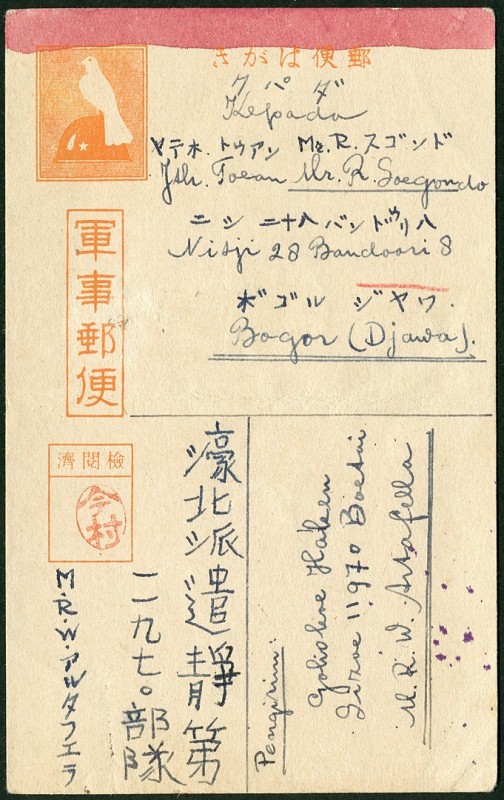 きがは便郵
クパダ
Kepada
ヤテホ. トゥアン Mr. R. スゴンド
Jth. Toean Mr. R. Soegondo
ニシ 二十八 バンドゥリ 八
Nisji 28 Bandoori 8
ボゴル ジャワ.
Bogor (Djawa).
軍事郵便
濟閲檢
今村
濠北派遣靜第
一一九七〇部隊
M.R.W.アルタフエラ
Pengirim:
Gohokoe Haken
11970 Boetai
M. R. W. Artafella